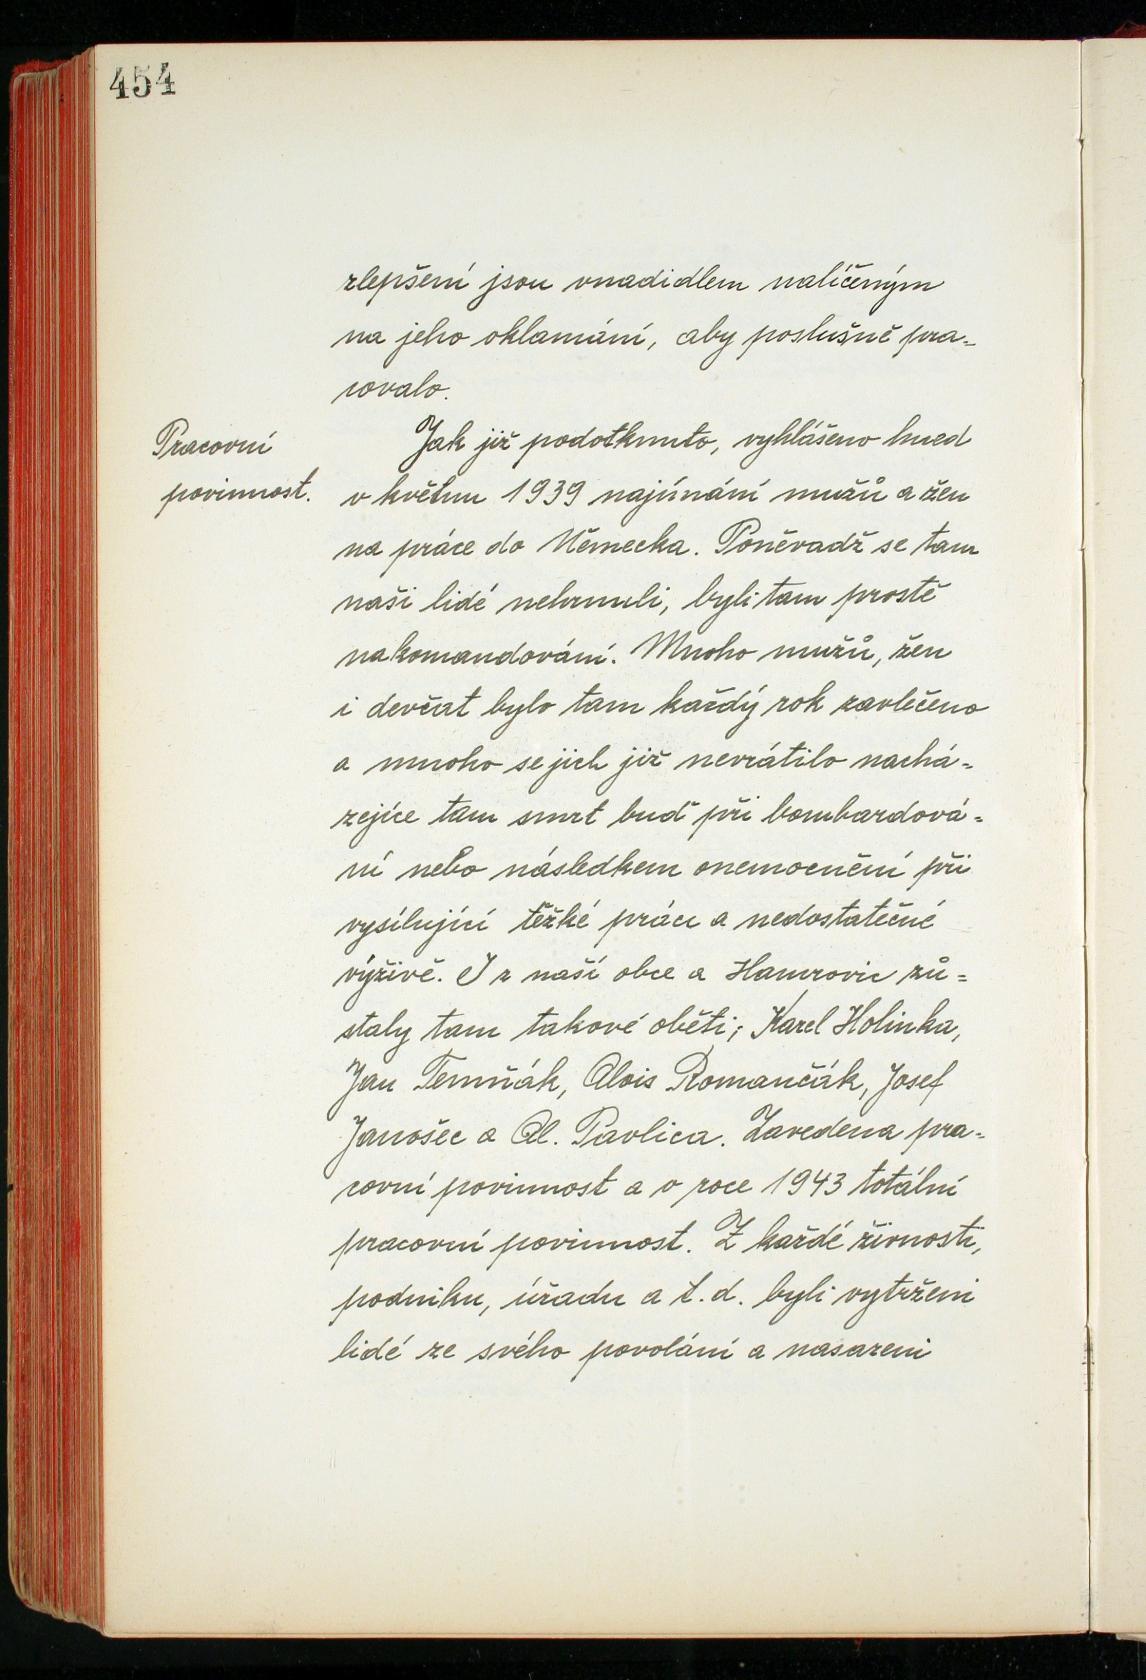 454
zlepšení jsou vnadidlem nalíčeným
na jeho oklamání, aby poslušně pra-
covalo.
Pracovní
povinnost.
Jak již podotknuto, vyhlášeno hned
v květnu 1939 najímání mužů a žen
na práce do Německa. Poněvadž se tam
naši lidé nehrnuli, byli tam prostě
nakomandováni. Mnoho mužů, žen
i devčat bylo tam každý rok zavlečeno
a mnoho se jich již nevrátilo nachá-
zejíce tam smrt buď při bombardová-
ní nebo následkem onemocnění při
vysilující těžké práci a nedostatečné
výživě. I z naší obce a Hamrovic zů-
staly tam takové oběti; Karel Holinka,
Jan Temňák, Alois Romančák, Josef
Janošec a Al. Pavlica. Zavedena pra-
covní povinnost a v roce 1943 totální
pracovní povinnost. Z každé živnosti,
podniku, úřadu a t. d. byli vytrženi
lidé ze svého povolání a nasazeni